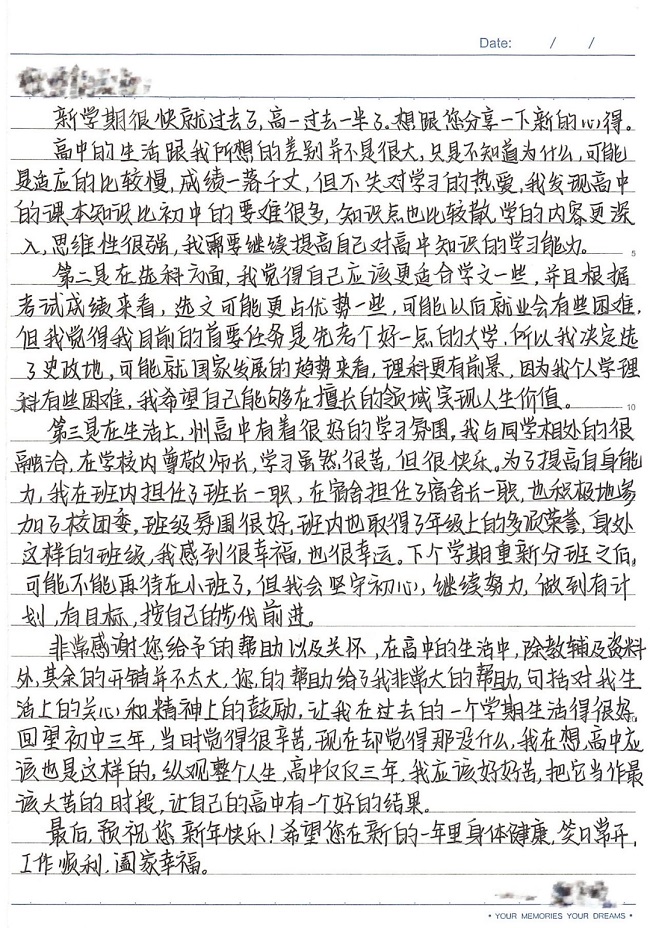 Date: / /
新学期很快就过去了,高一过去一半了。想跟您分享一下新的心得。
高中的生活跟我所想的差别并不是很大,只是不知道为什么,可能
是适应的比较慢,成绩一落千丈,但不失对学习的热爱,我发现高中
的课本知识比初中的要难很多,知识点也比较散,学的内容更深
入,思维性很强,我需要继续提高自己对高中知识的学习能力。
5
第二是在选科方面,我觉得自己应该更适合学文一些,并且根据
考试成绩来看,选文可能更占优势一些,可能以后就业会有些困难,
但我觉得我目前的首要任务是先考个好一点的大学,所以我决定选
了史政地,可能就国家发展的趋势来看,理科更有前景,因为我个人学理
科有些困难,我希望自己能够多在擅长的领域实现人生价值。
10
第三是在生活上,州高中有着很好的学习氛围,我与同学相处的很
融洽,在学校内尊敬师长,学习虽然很苦,但很快乐。为了提高自身能
力,我在班内担任了班长一职,在宿舍担任了宿舍长一职,也积极地参
加了校团委,班级氛围很好,班内也取得了年级上的多项荣誉,身处
这样的班级,我感到很幸福,也很幸运。下个学期重新分班之后,
可能不能再待在小班了,但我会坚守初心,继续努力,做到有计
划,有目标,按自己的步伐前进。
非常感谢您给予的帮助以及关怀,在高中的生活中,除教辅及资料
外,其余的开销并不太大,您的帮助给了我非常大的帮助,包括对我生
活上的关心和精神上的鼓励,让我在过去的一个学期生活得很好。
回望初中三年,当时觉得很辛苦,现在却觉得那没什么,我在想,高中应
该也是这样的,纵观整个人生,高中仅仅三年,我应该好好苦,把它当作最
该大苦的时段,让自己的高中有一个好的结果。
最后,预祝您新年快乐!希望您在新的一年里身体健康,笑口常开,
工作顺利,阖家幸福。
• YOUR MEMORIES YOUR DREAMS •